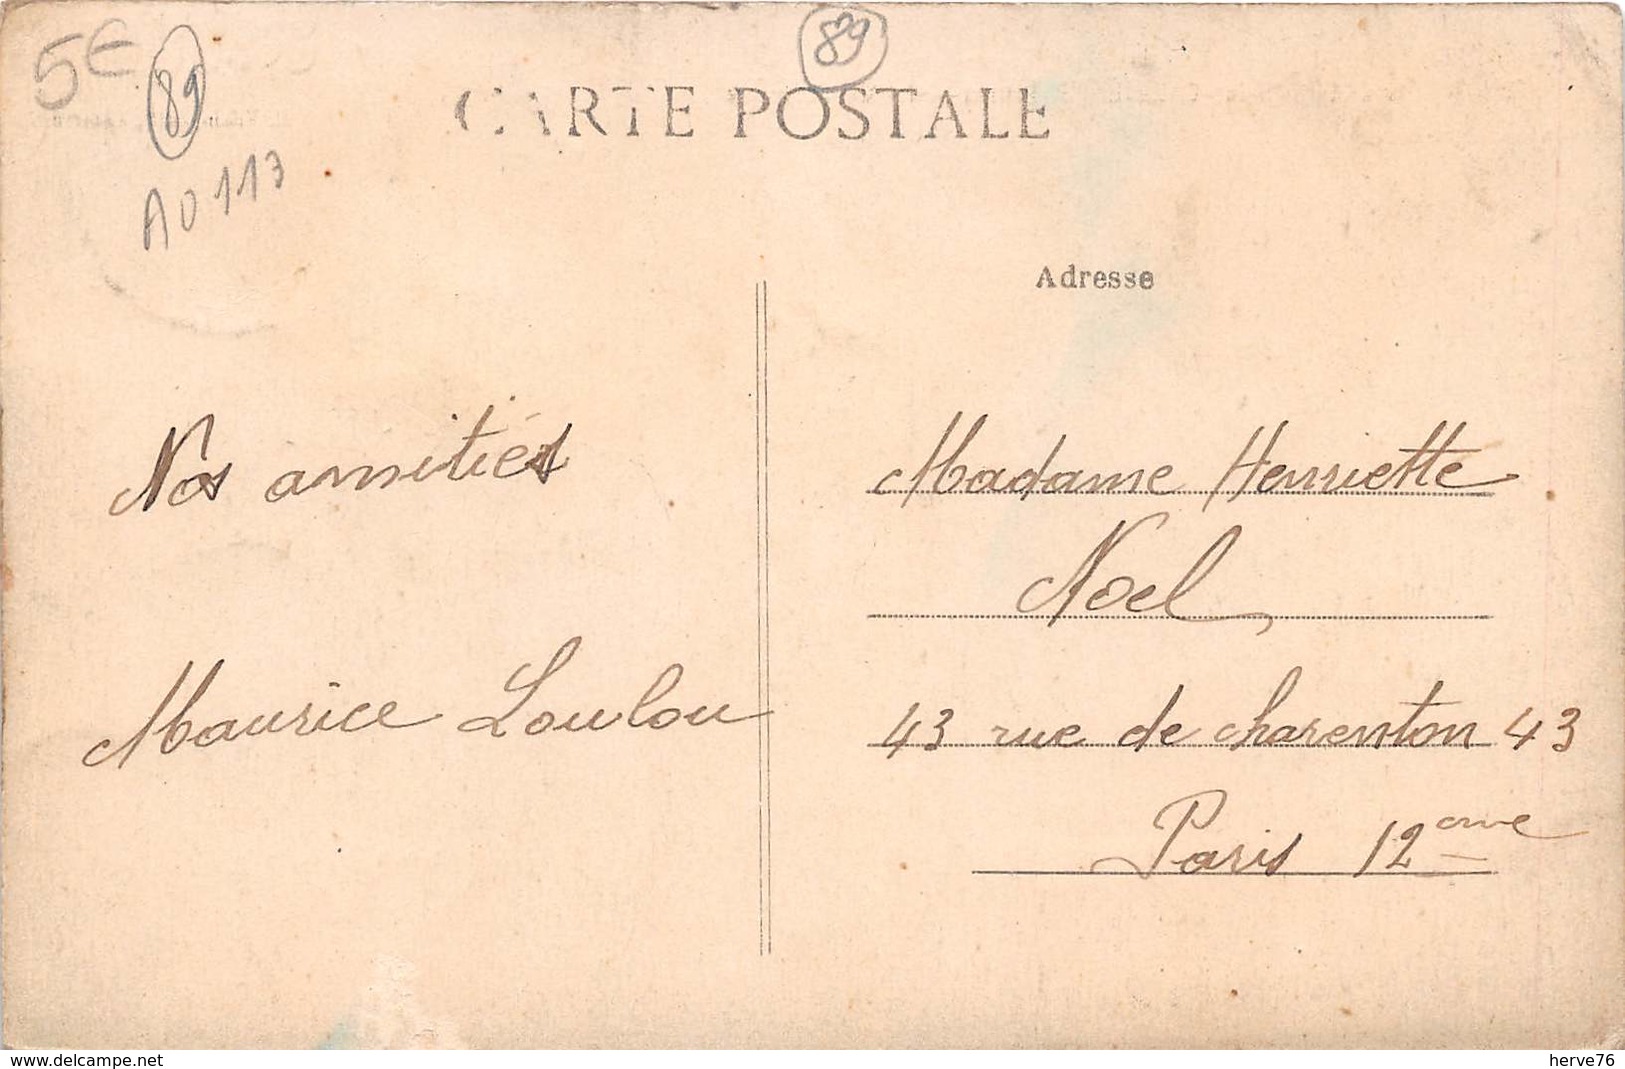 5€
89
89
CARTE POSTALE
A0113
Adresse
Nos amitiés
Maurice Loulou
Madame Henriette
Noel,
43 rue de charenton 43
Paris 12ème
www.delcampe.net
herve76